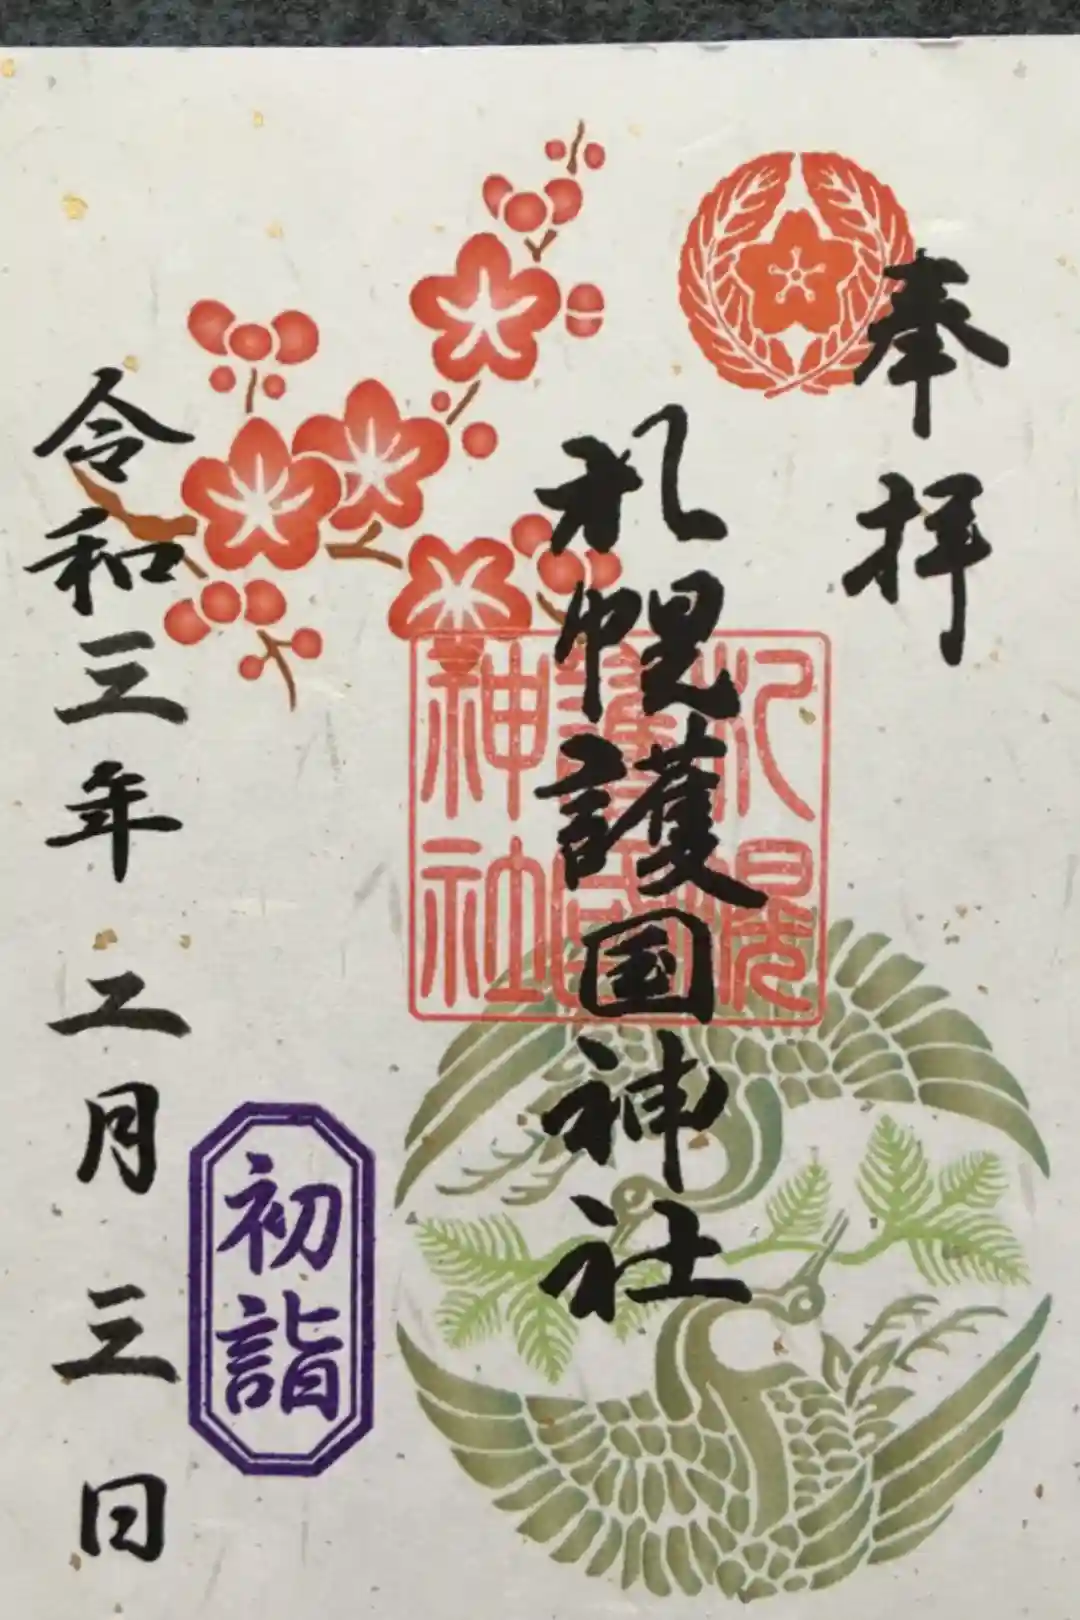 奉拝
札幌護国神社
札幌
護国
神社
令和三年二月三日
初詣